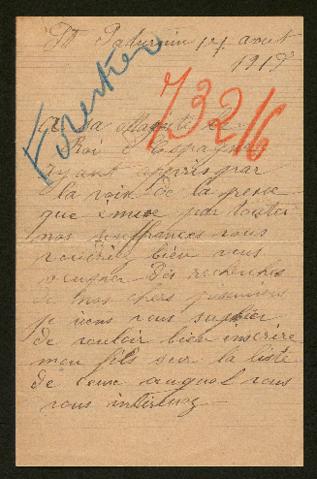 St Saturnin 17 aout
1917
Forestier
73216
A sa Majesté le
Roi d'Espagne
ayant appris par
la voix de la presse
que émue par toutes
nos souffrances vous
vouriez bien vous
occuper des recherches
de nos chers prisonniers
je viens vous supplier
de vouloir bien inscrire
mon fils sur la liste
de ceux auquel vous
vous